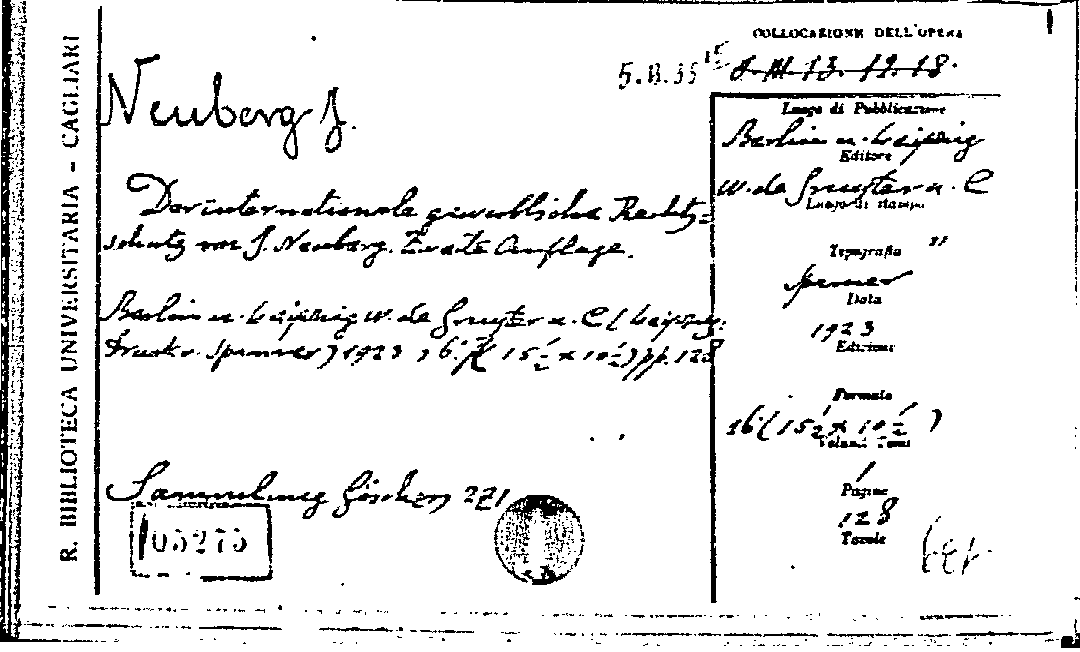 R. BIBLIOTECA UNIVERSITARIA - CAGLIARI
COLLOCAZIONE DELL'OPERA
5.B.35
Neuberg J.
Der internationale gewerbliche Rechts=
schutz von J. Neuberg. Zweite Auflage.
Berlin u. Leipzig W. de Gruyter u. C (Leipzig:
Druck v. Spamer) 1923 16° (15½ x 10½) pp. 128
Sammlung Göschen 271
05275
Luogo di Pubblicazione
Berlin u. Leipzig
Editore
W. de Gruyter u. C
Luogo di stampa
"
Tipografia
Spamer
Data
1923
Edizione
Formato
16° (15½ x 10½)
Volumi Tomi
1
Pagine
128
Tavole